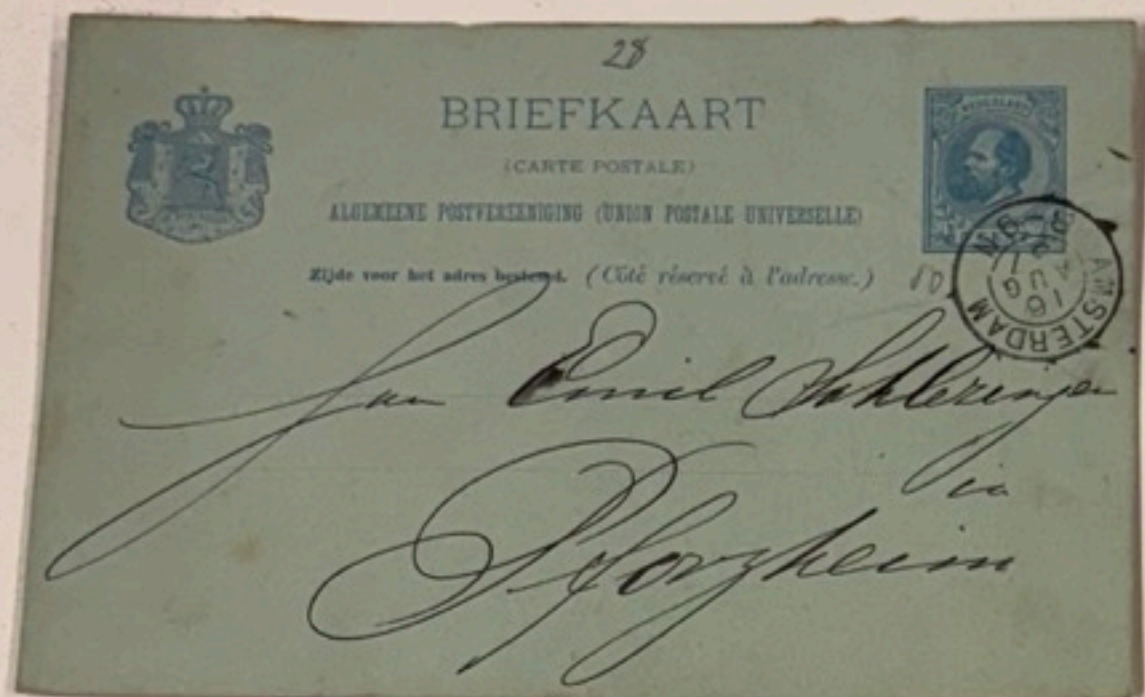 28
BRIEFKAART
(CARTE POSTALE)
ALGEMEENE POSTVEREENIGING (UNION POSTALE UNIVERSELLE)
Zijde voor het adres bestemd. (Côté réservé à l'adresse.)
80
AMSTERDAM
16
AUG
Emil Schlezinger
in
Pforzheim